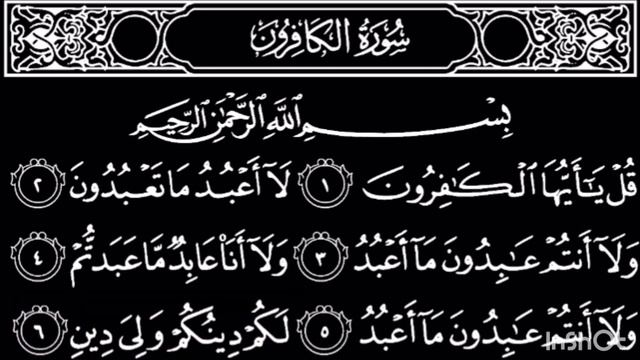 سُورَةُ الكَافِرُونَ
بِسْمِ اللَّهِ الرَّحْمَٰنِ الرَّحِيمِ
قُلْ يَٰٓأَيُّهَا ٱلْكَٰفِرُونَ ١ لَآ أَعْبُدُ مَا تَعْبُدُونَ ٢
وَلَآ أَنتُمْ عَٰبِدُونَ مَآ أَعْبُدُ ٣ وَلَآ أَنَا۠ عَابِدٌ مَّا عَبَدتُّمْ ٤
وَلَآ أَنتُمْ عَٰبِدُونَ مَآ أَعْبُدُ ٥ لَكُمْ دِينُكُمْ وَلِىَ دِينِ ٦
InShOt